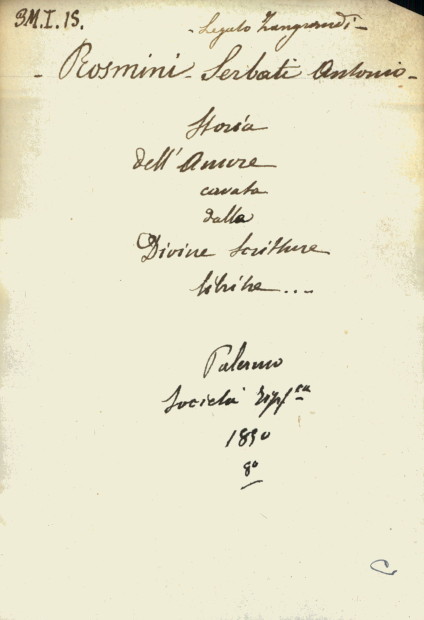 3M.I.15.
- Legato Zangrandi -
- Rosmini - Serbati Antonio -
Storia
dell'Amore
cavata
dalle
Divine Scritture
libri tre....
Palermo
Società
1850
8º
C